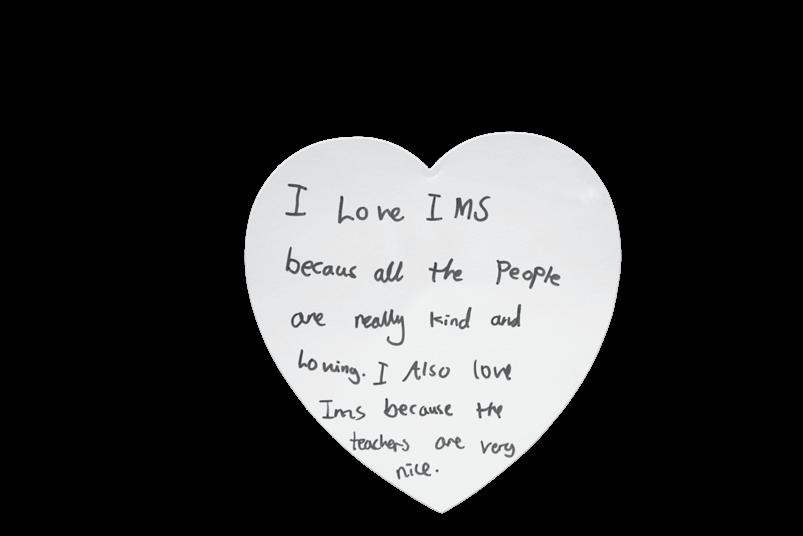 I Love IMS
becaus all the People
are really kind and
Loving. I Also love
Ims because the
teachers are very
nice.